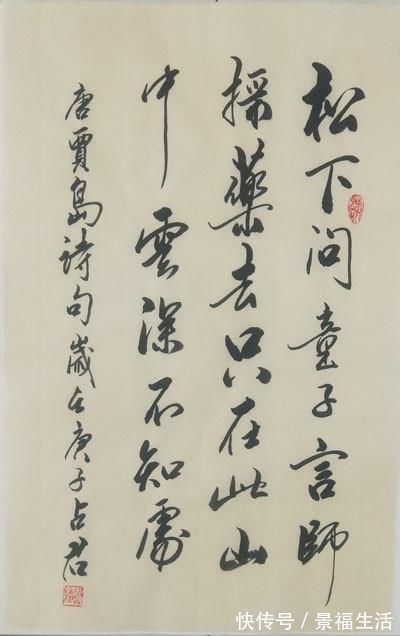 松下问童子言師
採藥去只在此山
中雲深不知處
唐賈島詩句歲在庚子占君
快传号/景福生活